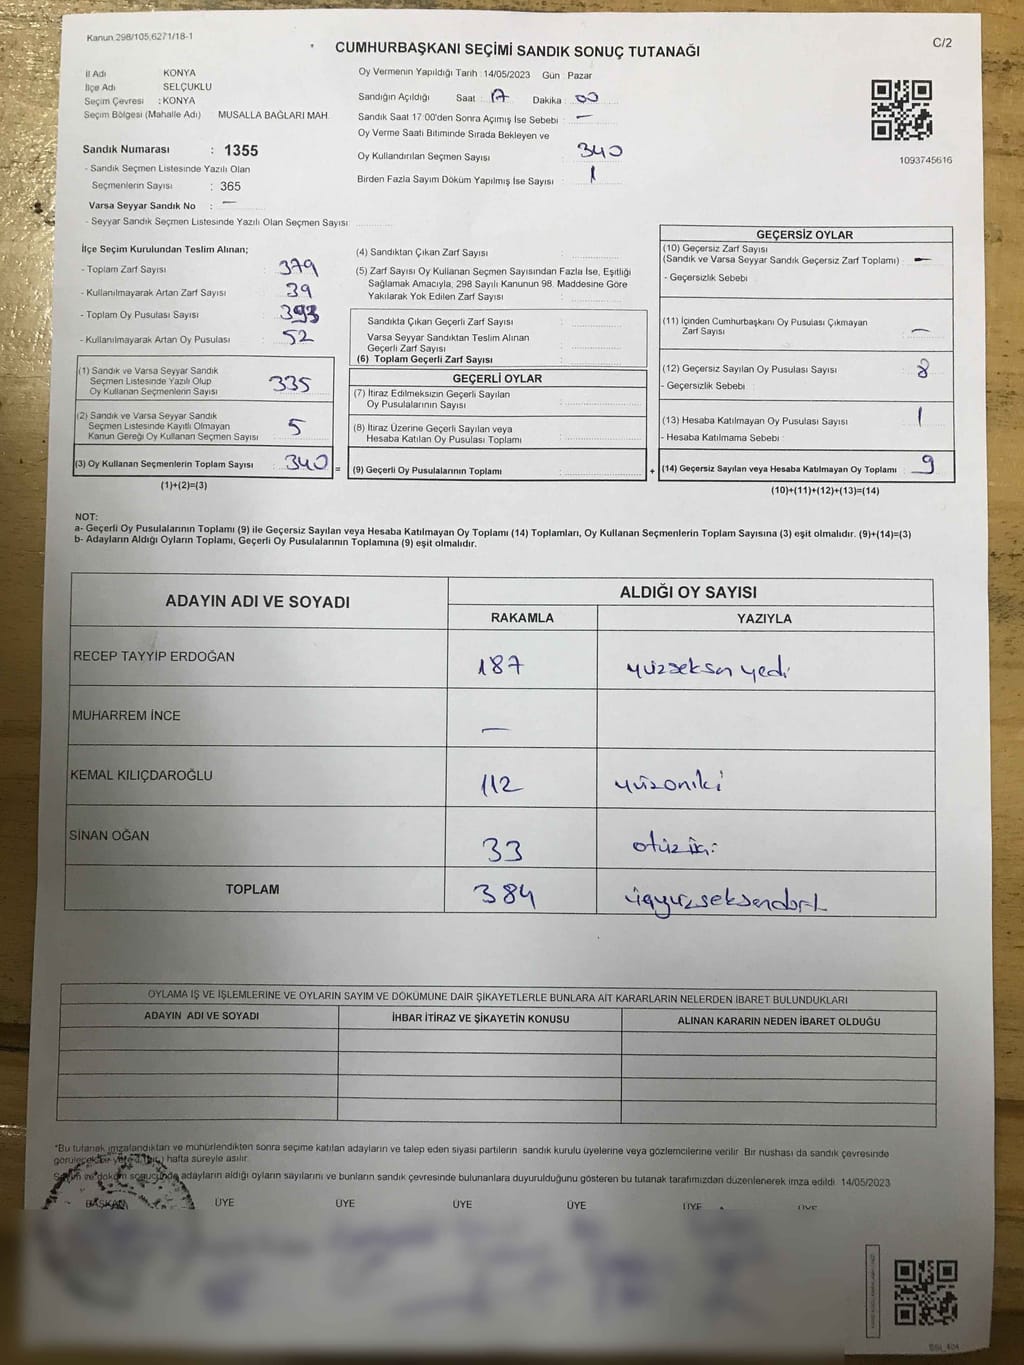 Kanun 298/105,6271/18-1
C/2
CUMHURBAŞKANI SEÇİMİ SANDIK SONUÇ TUTANAĞI
İl Adı KONYA
İlçe Adı SELÇUKLU
Seçim Çevresi : KONYA
Seçim Bölgesi (Mahalle Adı) MUSALLA BAĞLARI MAH.
Sandık Numarası : 1355
- Sandık Seçmen Listesinde Yazılı Olan
Seçmenlerin Sayısı : 365
Varsa Seyyar Sandık No : —
- Seyyar Sandık Seçmen Listesinde Yazılı Olan Seçmen Sayısı
Oy Vermenin Yapıldığı Tarih :14/05/2023 Gün : Pazar
Sandığın Açıldığı Saat : 17 Dakika : 00
Sandık Saat 17:00'den Sonra Açımış İse Sebebi : —
Oy Verme Saati Bitiminde Sırada Bekleyen ve
Oy Kullandırılan Seçmen Sayısı 340
Birden Fazla Sayım Döküm Yapılmış İse Sayısı 1
1093745616
İlçe Seçim Kurulundan Teslim Alınan;
- Toplam Zarf Sayısı : 379
- Kullanılmayarak Artan Zarf Sayısı : 39
- Toplam Oy Pusulası Sayısı : 393
- Kullanılmayarak Artan Oy Pusulası : 52
(1) Sandık ve Varsa Seyyar Sandık
Seçmen Listesinde Yazılı Olup
Oy Kullanan Seçmenlerin Sayısı 335
(2) Sandık ve Varsa Seyyar Sandık
Seçmen Listesinde Kayıtlı Olmayan
Kanun Gereği Oy Kullanan Seçmen Sayısı 5
(3) Oy Kullanan Seçmenlerin Toplam Sayısı 340 =
(1)+(2)=(3)
(4) Sandıktan Çıkan Zarf Sayısı :
(5) Zarf Sayısı Oy Kullanan Seçmen Sayısından Fazla İse, Eşitliği
Sağlamak Amacıyla, 298 Sayılı Kanunun 98. Maddesine Göre
Yakılarak Yok Edilen Zarf Sayısı :
Sandıkta Çıkan Geçerli Zarf Sayısı :
Varsa Seyyar Sandıktan Teslim Alınan
Geçerli Zarf Sayısı :
(6) Toplam Geçerli Zarf Sayısı :
GEÇERLİ OYLAR
(7) İtiraz Edilmeksizin Geçerli Sayılan
Oy Pusulalarının Sayısı :
(8) İtiraz Üzerine Geçerli Sayılan veya
Hesaba Katılan Oy Pusulası Toplamı :
(9) Geçerli Oy Pusulalarının Toplamı : +
GEÇERSİZ OYLAR
(10) Geçersiz Zarf Sayısı
(Sandık ve Varsa Seyyar Sandık Geçersiz Zarf Toplamı) : —
- Geçersizlik Sebebi :
(11) İçinden Cumhurbaşkanı Oy Pusulası Çıkmayan
Zarf Sayısı —
(12) Geçersiz Sayılan Oy Pusulası Sayısı : 8
- Geçersizlik Sebebi :
(13) Hesaba Katılmayan Oy Pusulası Sayısı : 1
- Hesaba Katılmama Sebebi :
(14) Geçersiz Sayılan veya Hesaba Katılmayan Oy Toplamı : 9
(10)+(11)+(12)+(13)=(14)
NOT:
a- Geçerli Oy Pusulalarının Toplamı (9) ile Geçersiz Sayılan veya Hesaba Katılmayan Oy Toplamı (14) Toplamları, Oy Kullanan Seçmenlerin Toplam Sayısına (3) eşit olmalıdır. (9)+(14)=(3)
b- Adayların Aldığı Oyların Toplamı, Geçerli Oy Pusulalarının Toplamına (9) eşit olmalıdır.
ADAYIN ADI VE SOYADI ALDIĞI OY SAYISI
RAKAMLA YAZIYLA
RECEP TAYYİP ERDOĞAN 187 yüzseksen yedi
MUHARREM İNCE —
KEMAL KILIÇDAROĞLU 112 yüzoniki
SİNAN OĞAN 33 otüz iki
TOPLAM 384 üçyüzseksendört
OYLAMA İŞ VE İŞLEMLERİNE VE OYLARIN SAYIM VE DÖKÜMÜNE DAİR ŞİKAYETLERLE BUNLARA AİT KARARLARIN NELERDEN İBARET BULUNDUKLARI
ADAYIN ADI VE SOYADI İHBAR İTİRAZ VE ŞİKAYETİN KONUSU ALINAN KARARIN NEDEN İBARET OLDUĞU
*Bu tutanak imzalandıktan ve mühürlendikten sonra seçime katılan adayların ve talep eden siyasi partilerin sandık kurulu üyelerine veya gözlemcilerine verilir. Bir nushası da sandık çevresinde
görülecek bir yere (bir) hafta süreyle asılır.
Sayım ve döküm sonucunda adayların aldığı oyların sayılarını ve bunların sandık çevresinde bulunanlara duyurulduğunu gösteren bu tutanak tarafımızdan düzenlenerek imza edildi. 14/05/2023
BAŞKAN ÜYE ÜYE ÜYE ÜYE ÜYE ÜYE